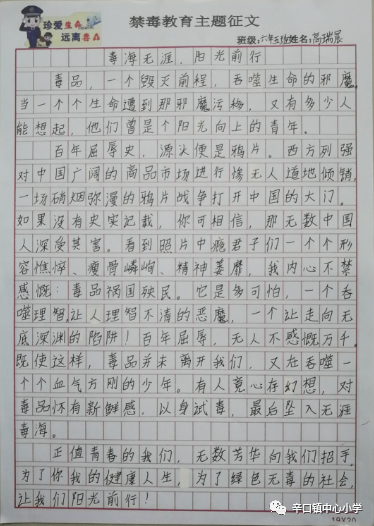 珍爱生命
远离毒品
禁毒教育主题征文
班级:六年五班姓名:高瑞晨
毒海无涯,阳光前行
毒品,一个毁灭前程,吞噬生命的邪魔。
当一个个生命遭到那邪魔污秽,又有多少人
能想起,他们曾是个阳光向上的青年。
百年屈辱史,源头便是鸦片。西方列强
对中国广阔的商品市场进行惨无人道地倾销。
一场硝烟弥漫的鸦片战争打开中国的大门。
如果没有史实记载,你可相信,那无数中国
人深受其害。看到照片中瘾君子们一个个形
容憔悴、瘦骨嶙峋、精神萎靡,我内心不禁
感慨:毒品祸国殃民。它是多可怕,一个吞
噬理智让人理智不清的恶魔,一个让走向无
底深渊的陷阱!百年屈辱,无人不感慨万千。
既使这样,毒品并未离开我们,又在吞噬一
个个血气方刚的少年。有人竟心存幻想,对
毒品怀有新鲜感,以身试毒,最后坠入无涯
毒海。
正值青春的我们,无数芳华向我们招手。
为了你我的健康人生,为了绿色无毒的社会,
让我们阳光前行!
辛口镇中心小学
19X20